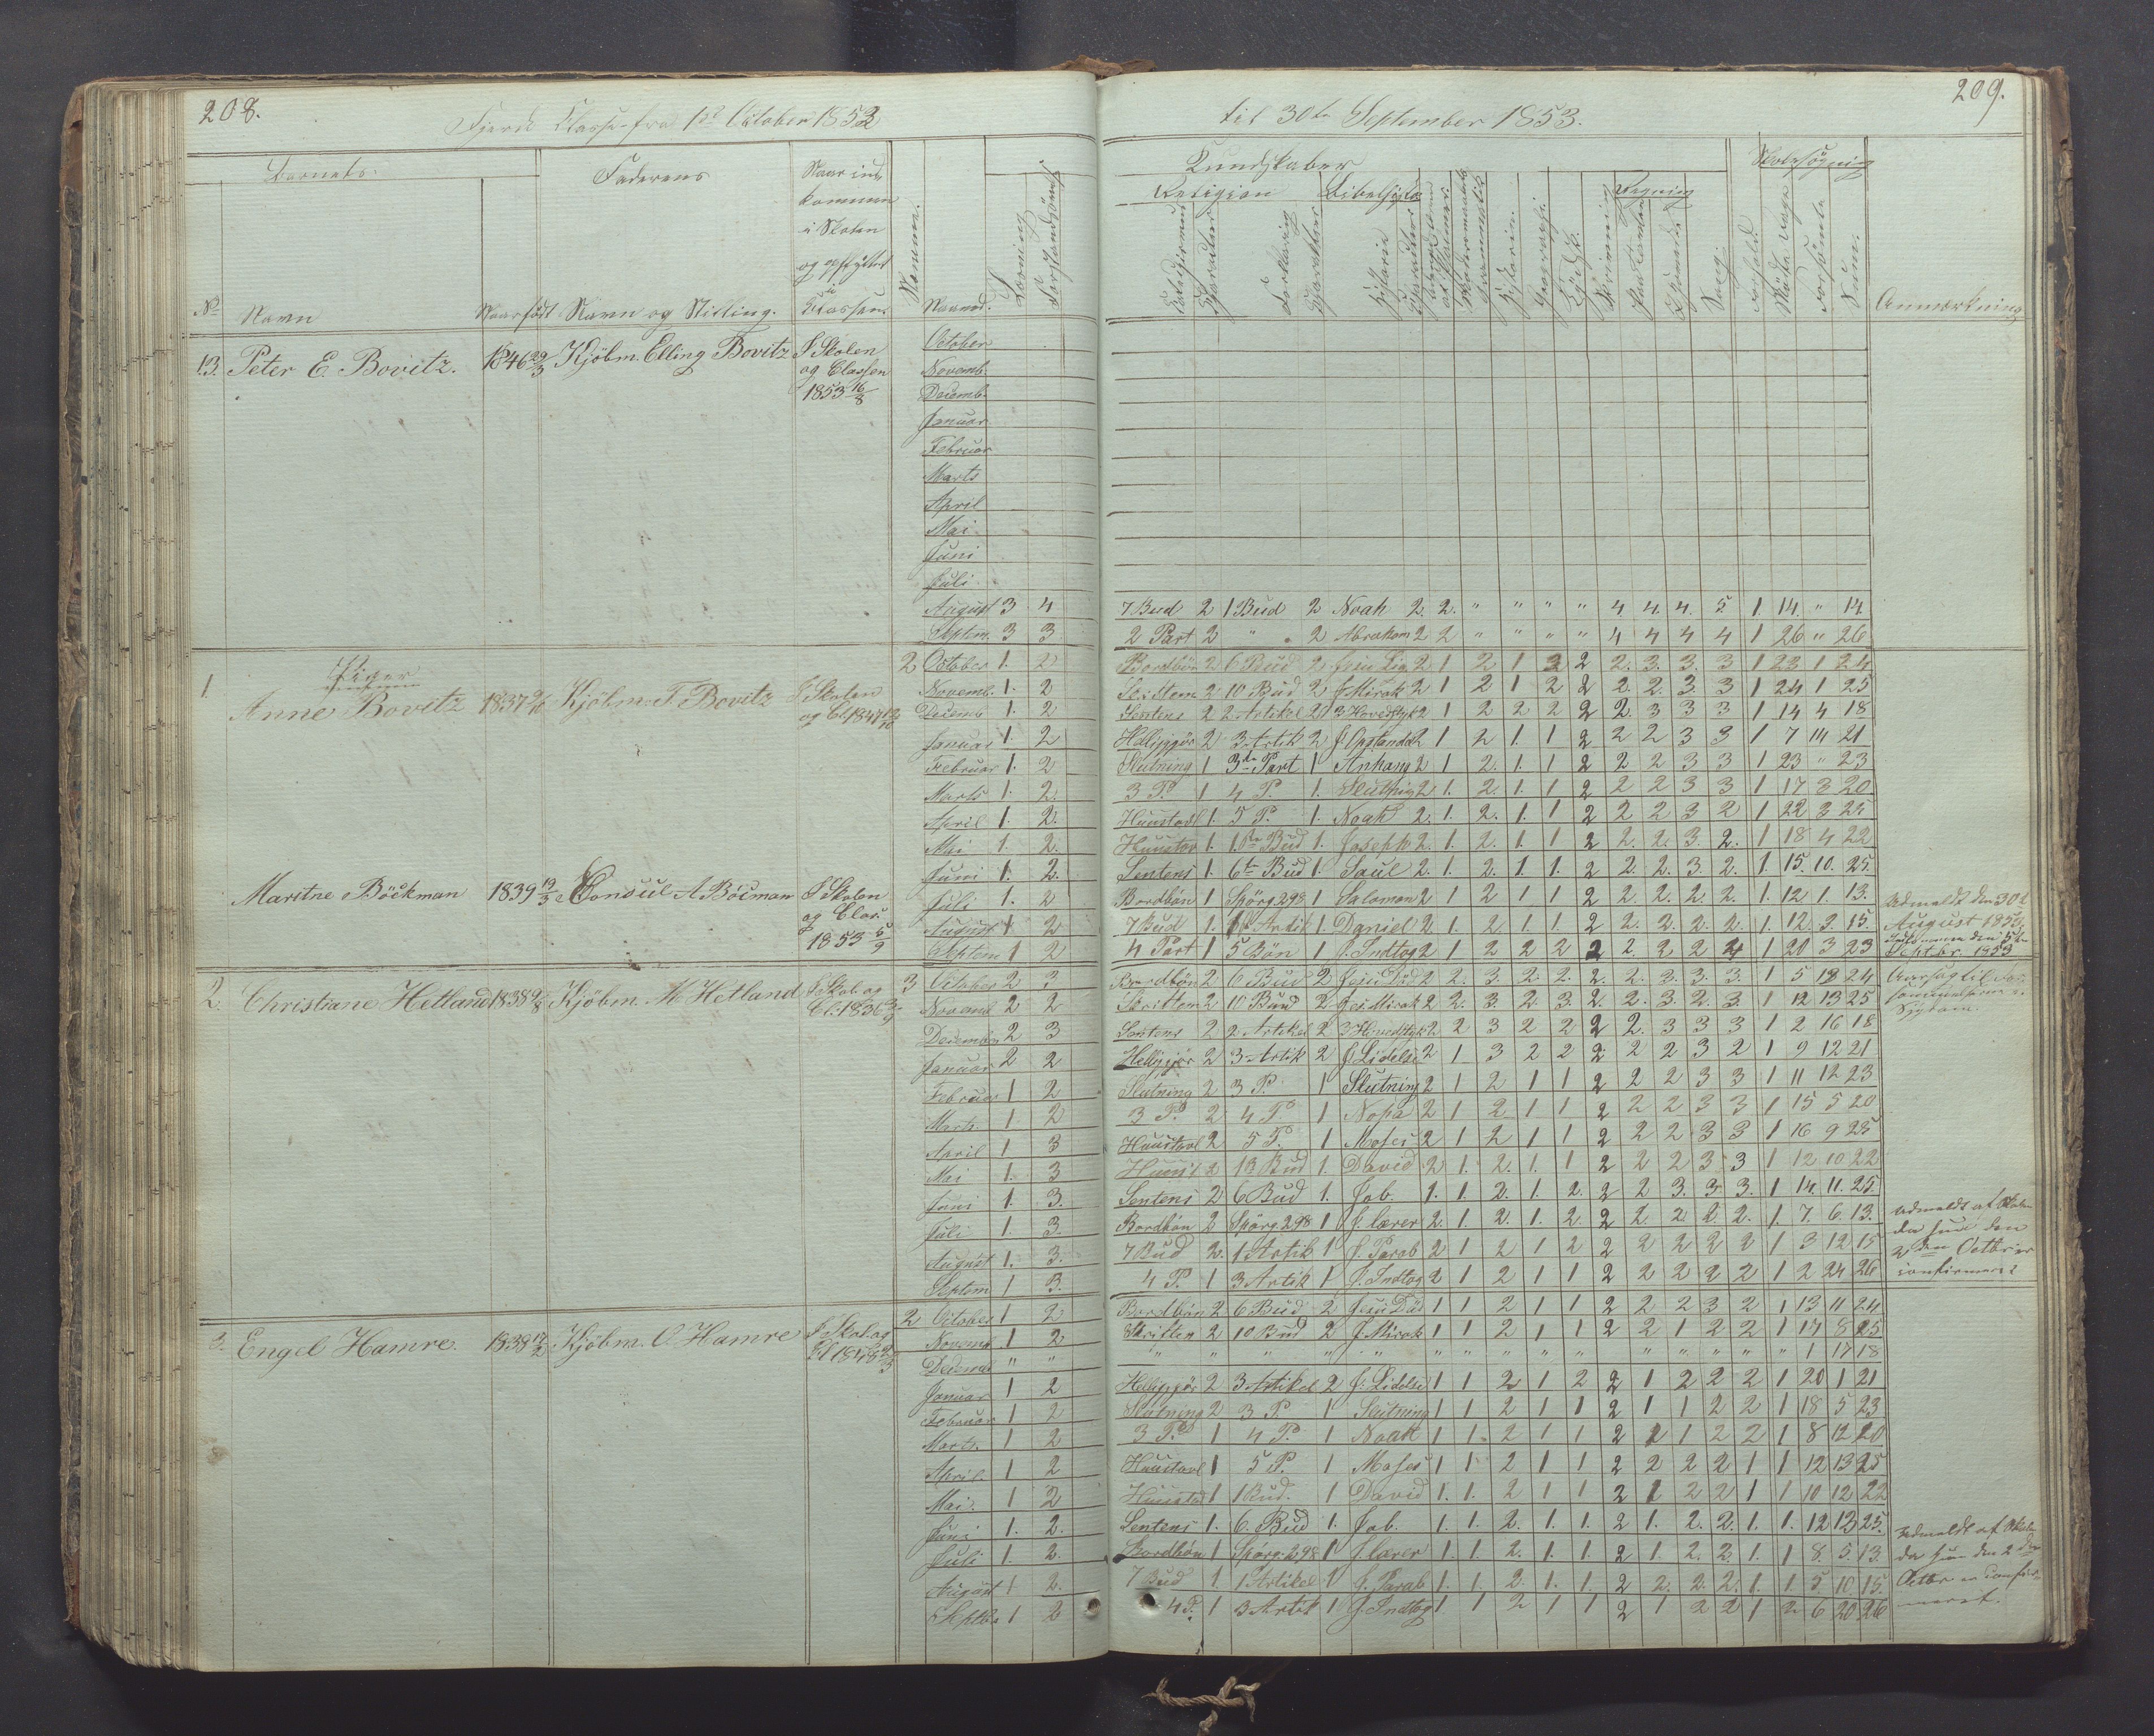 208.
Fjerde Classe fra 1st October 1852
til 30te September 1853.
209.
Barnets
Faderens
Naar ind-
kommen
i Skolen
og opflyttet
i
Classen.
Kundskaber
Skolesøgning
Religion
Bibelhistorie
Regning
No
Navn
Naar født
Navn og Stilling.
Maaned.
Anmærkning
13. Peter E. Bovitz. 1846 29/3 Kjöbm. Elling Bovitz I Skolen
og Classen
1853 16/8
October
Novemb.
Decemb.
Januar
Februar
Marts
April
Mai
Juni
Juli
August 3 4 7 Bud 2 1 Bud 2 Noah 2 2. " " " " 4 4. 4. 5. 1. 14. " 14.
Septem. 3 3 2 Part 2 " " 2 Abraham 2 2 " " " " 4 4 4 4 1 26 " 26
Piger
1. Anne Bovitz 1837 Kjöbm. T. Bovitz I Skolen
og Cl. 1847
2 October 1. 2 Bordbön 2 6 Bud 2 2 1 2 1 2 2 2. 3. 3. 3 1 23 1 24
Novemb. 1. 2 2 10 Bud 2 J. Mirak 2 1 2 1 2 2 2. 2. 3. 3 1 24 1 25
Decemb 1. 2 Sentens 2 2 Artikel 2 3 Hovedstyk 2 1 2 2 2 2 2. 3 3 3 1 14 4 18
Januar 1. 2 Helliggjör 2 3 Artik 2 J. Opstandel 2 1 2 1. 1 2 2 2 3 3 1 7 14 21
Februar 1. 2 Slutning 1 3die Part 1 Anhang 2 1 2. 1. 1 2 2 2 3 3 1 23 " 23
Marts 1. 2. 3 P. 1 4 P. 1. Slutning 2 1. 2. 1. 1 2 2 2 3 3 1 17 3 20
April 1. 2. Huustavl 1. 5 P. 1. Noah 2. 1. 2. 1. 1 2 2 2 3 2 1 22 3 25
Mai 1. 2. Huustav 1. 1ste Bud 1. Joseph 2. 1. 2. 1. 1 2 2. 2. 3. 2. 1 18 4 22
Juni 1. 2. Sentens 1. 6te Bud 1 Saul 2. 1. 2. 1. 1. 2 2. 2. 3. 2. 1. 15. 10. 25.
Maritne Böckman 1839 13/3 Consul A Böcman I Skolen
og Clas.
1853 5/9
Juli 1. 2 Bordbön 1 Spörg. 298 1 Salomon 2 1 2 1 1 2 2. 2. 2. 2. 1. 12 1. 13.
August 1 2 7 Bud 1 1 Artik 1 Daniel 2 1. 2 1. 1 2 2. 2. 2. 2. 1. 12. 3. 15.
Septem 1 2 4 Part 1 5 Bön 1 J. Indtog 2 1 2 2 2 2 2. 2 2 4 1 20 3 23
Udmeldt den 30te
August 1853
Indkommen den 5te
Septbr. 1853
2. Christiane Hetland 1838 Kjöbm. M Hetland I Skol. og
Cl. 1836
3 October 2 3 Bordbön 2 6 Bud 2 Jesu Död 2 2. 3. 2. 2. 2. 2. 3. 3. 3. 1 5 19 24
Novemb 2 2 Skriften 2 10 Bud 2 Jes. Mirak 2 2. 3. 2. 3. 2. 2. 3. 2. 3. 1 12 13 25
Decemb. 2 3 Sentens 2 2 Artikel 2 3 Hovedstyk 2 2 3 2 2 2 2. 3 3 3 1 2 16 18
Januar 2 2 Helliggjör 2 3 Artik 2 J. Lidelse 2 1 3 2 2 2 2 2 3 2 1 9 12 21
Februar 1 2 Slutning 2 3 P. 1 Slutning 2 1 2 1 1 2 2 2 3 3 1 11 12 23
Marts 1 2 3 P. 2 4 P. 1 Noha 2 1 2 1 1 2 2 2 3 3 1 15 5 20
April 1 3 Huustavl 2 5 P. 1 Moses 2 1 2 1 1 2 2 2 3 3 1 16 9 25
Mai 1. 3 Huust 2 1 Bud 1. David 2 1. 2. 1. 1 2 2 2 3 3 1 12 10 22
Juni 1. 3. Sentens 2 6 Bud 1. Job. 1. 1. 2. 1. 2. 2 2 3. 3. 3. 1 14. 11. 25.
Juli 1. 3. Bordbön 2 Spörg. 298 1 J. lærer 2. 1. 2. 1. 2. 2 2. 2. 2. 2. 1. 7. 6. 13.
August 1. 3. 7 Bud 2. 1 Artik 1 J. Parab 2 1 2 1 2 2 2 2 2 2 1 3 12 15
Septem 1 3. 4 P. 1 3 Artik 1 J. Indtog 2 1 2 1 1 2 2 2 2 2 1 2 24 26
Aarsag til For-
sömmelserne er
Sygdom.
Udmeldt af Skolen
da hun den
2den Octbr. er
confirmeret
3. Engel Hamre 1838 Kjöbm. O. Hamre I Skol. og
Cl. 1848
2 October 1 2 Bordbön 2 6 Bud 2 Jesu Död 1 1 2 1 1 2 2 2 3 2 1 13 11 24
Novemb. 1 2 Skriften 2 10 Bud 2 J. Mirak 1 1 2 1 1 2 2 1 2 2 1 17 8 25
Decemb " " " " " " " " " " " " " " " " " " 1 17 18
Januar 1 2 Helliggjör 2 3 Artikel 2 J. Lidelse 1 1 2 1 2 2 1 2 2 2 1 20 1 21
Februar 1 2 Slutning 2 3 P. 1 Slutning 1 1 2 1 1 2 1 1 2 2 1 18 5 23
Marts. 1 2 3 P. 1 4 P. 1 Noah 1 1. 2 1 1 2 1 1 2 2 1 8 12 20
April 1 2 Huustavl 1 5 P. 1 Moses 1 1 2 1 1 2 2 2 2 1 1 12 13 25
Mai. 1 2 Huustavl 1 1 Bud. 1 David 1. 1. 2 1 1 2 1 2 2 1 1 10 12 22
Juni 1. 2. Sentens 1. 6. Bud 1. Job. 1. 1. 2. 1. 1. 2 1. 2. 2. 1. 1. 12 13 25.
Juli 1. 2. Bordbön 1 Spörg. 298 1 J. lærer 1. 1. 2. 1. 1. 2 1. 2. 2. 1. 1 8. 5. 13.
August 1 2. 7 Bud 1. 1 Artikel 1 J. Parab 1. 1. 2. 1. 1. 2 2. 2. 2. 1. 1. 5. 10 15.
Septbr 1 2 4 P. 1 3 Artik 1 J. Indtog 1 1 2 1 1 2 1 2 2 1 2 6 20 26
Udmeldt af Skolen
da hun den 2den
Octbr. er confir-
meret.